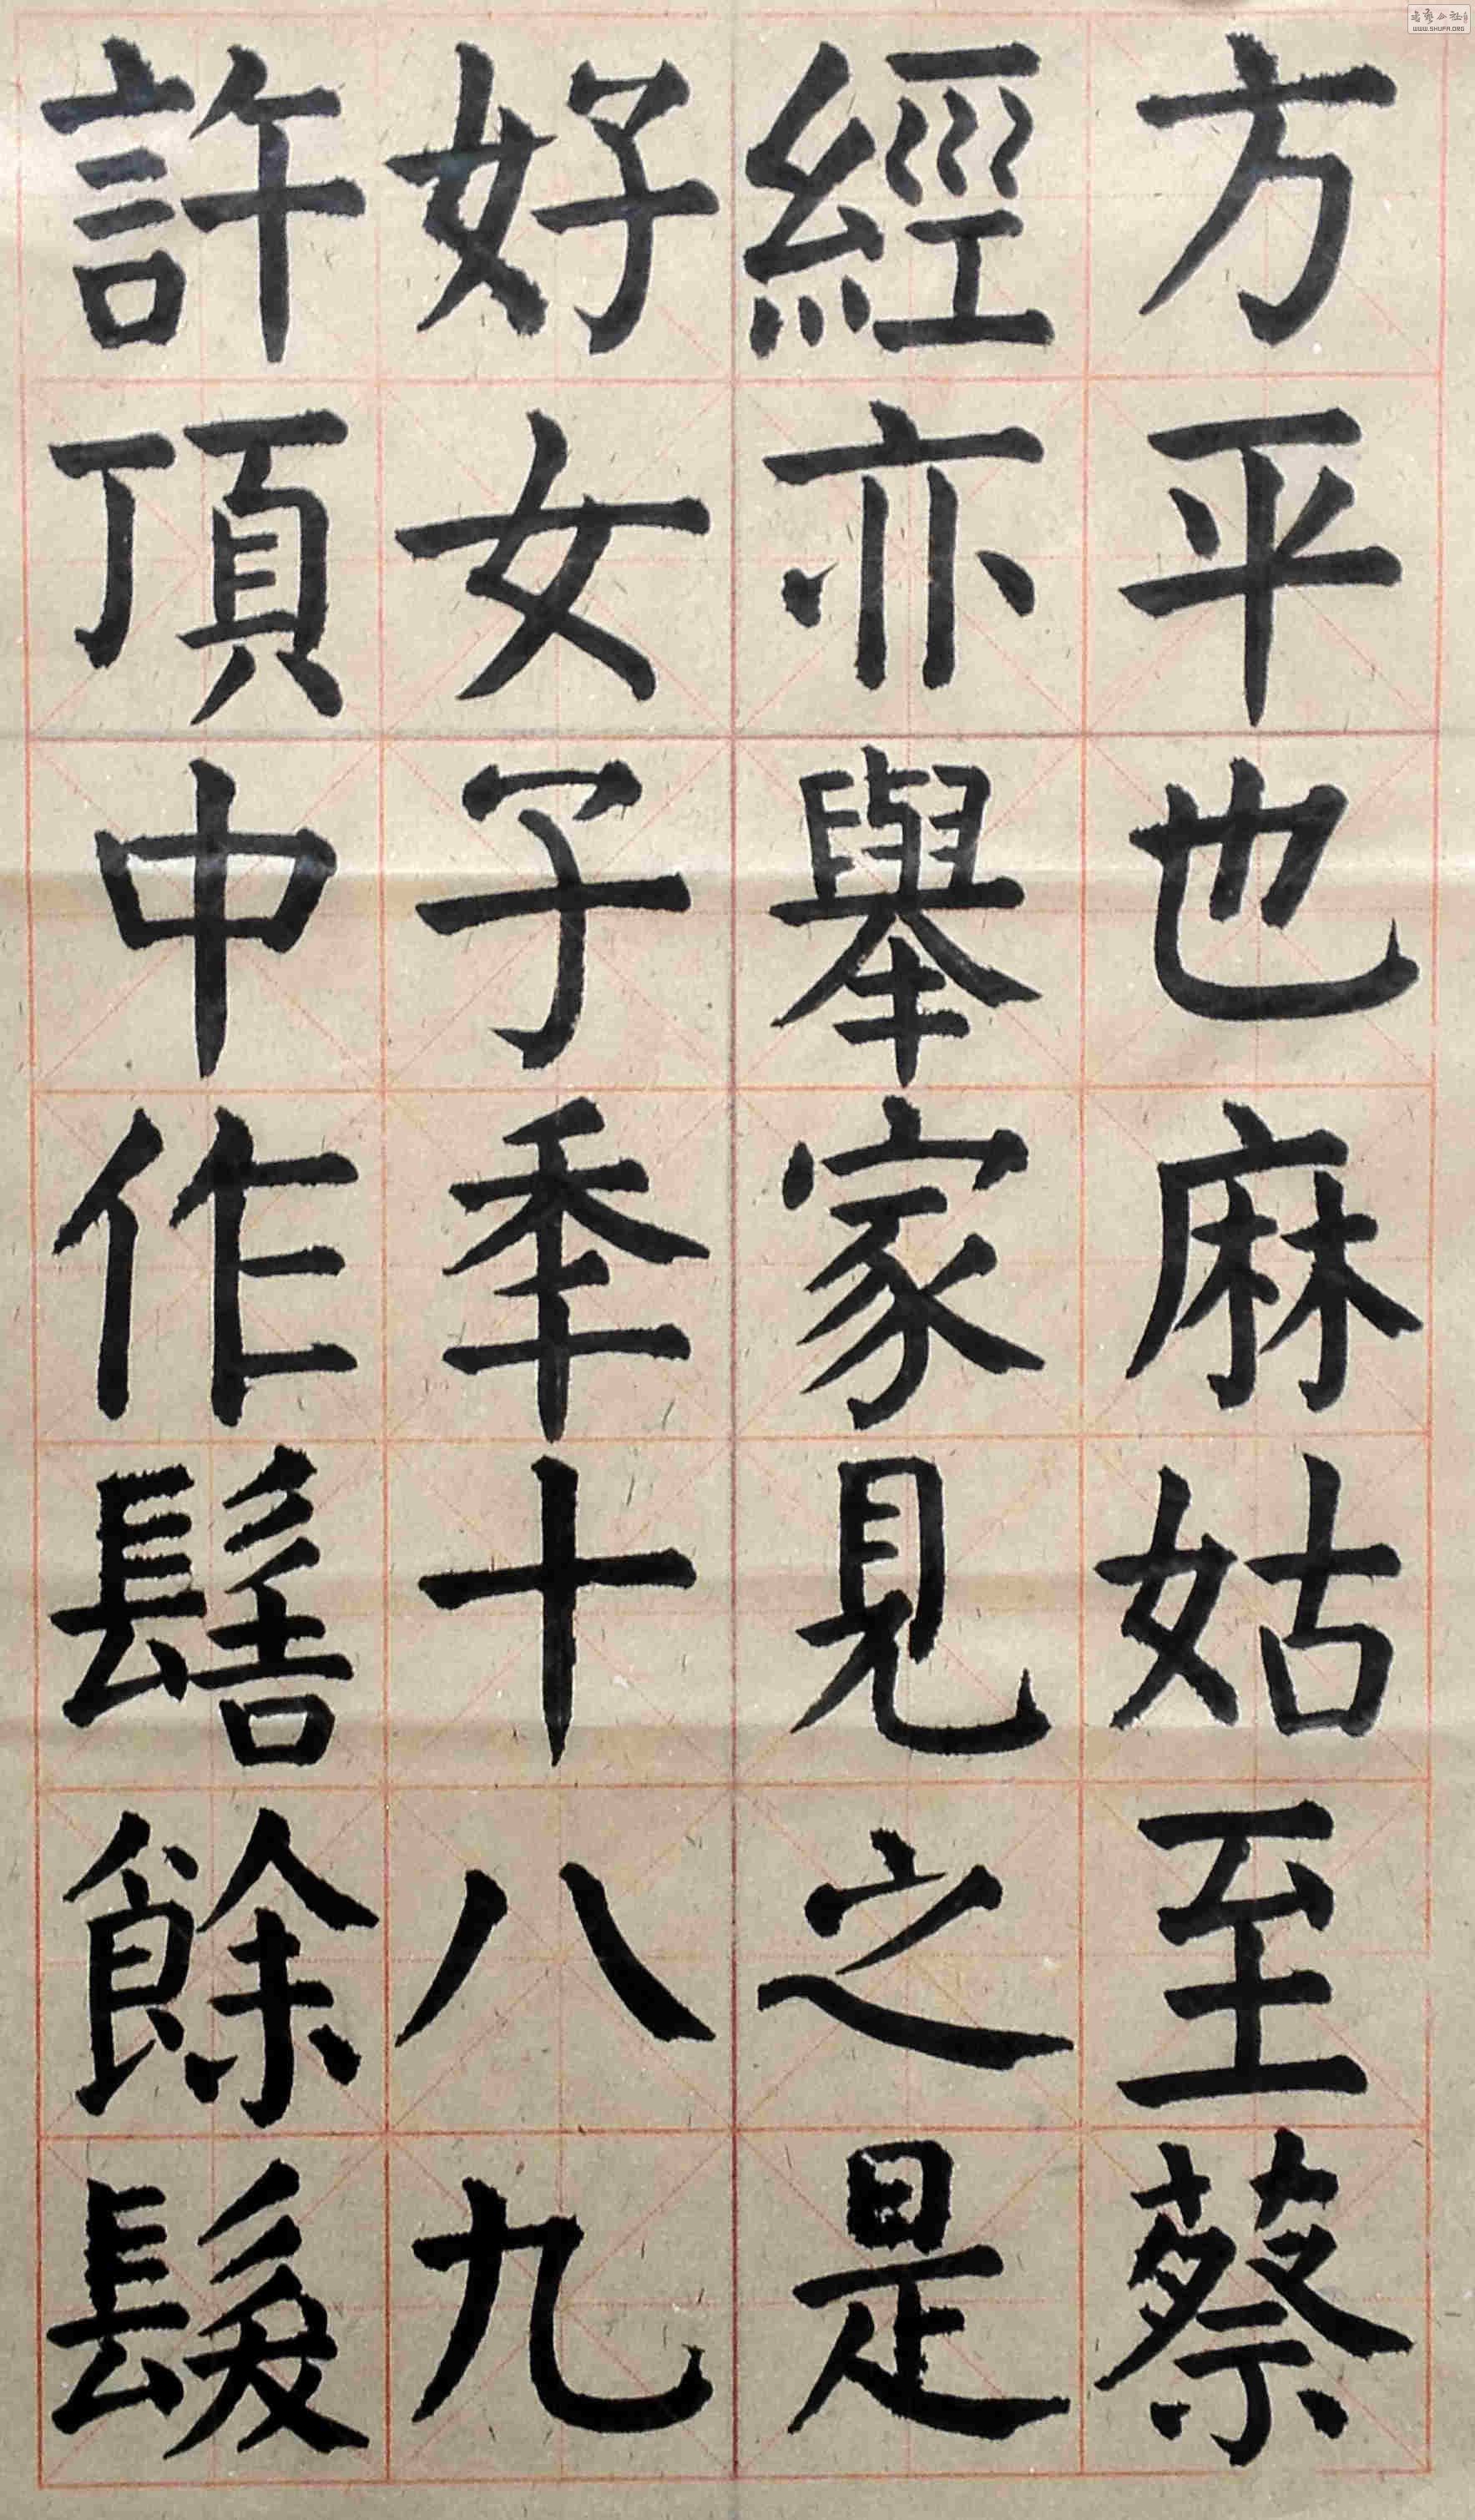 方平也麻姑至蔡
經亦舉家見之是
好女子季十八九
許頂中作髻餘髮
WWW.SHUFA.ORG